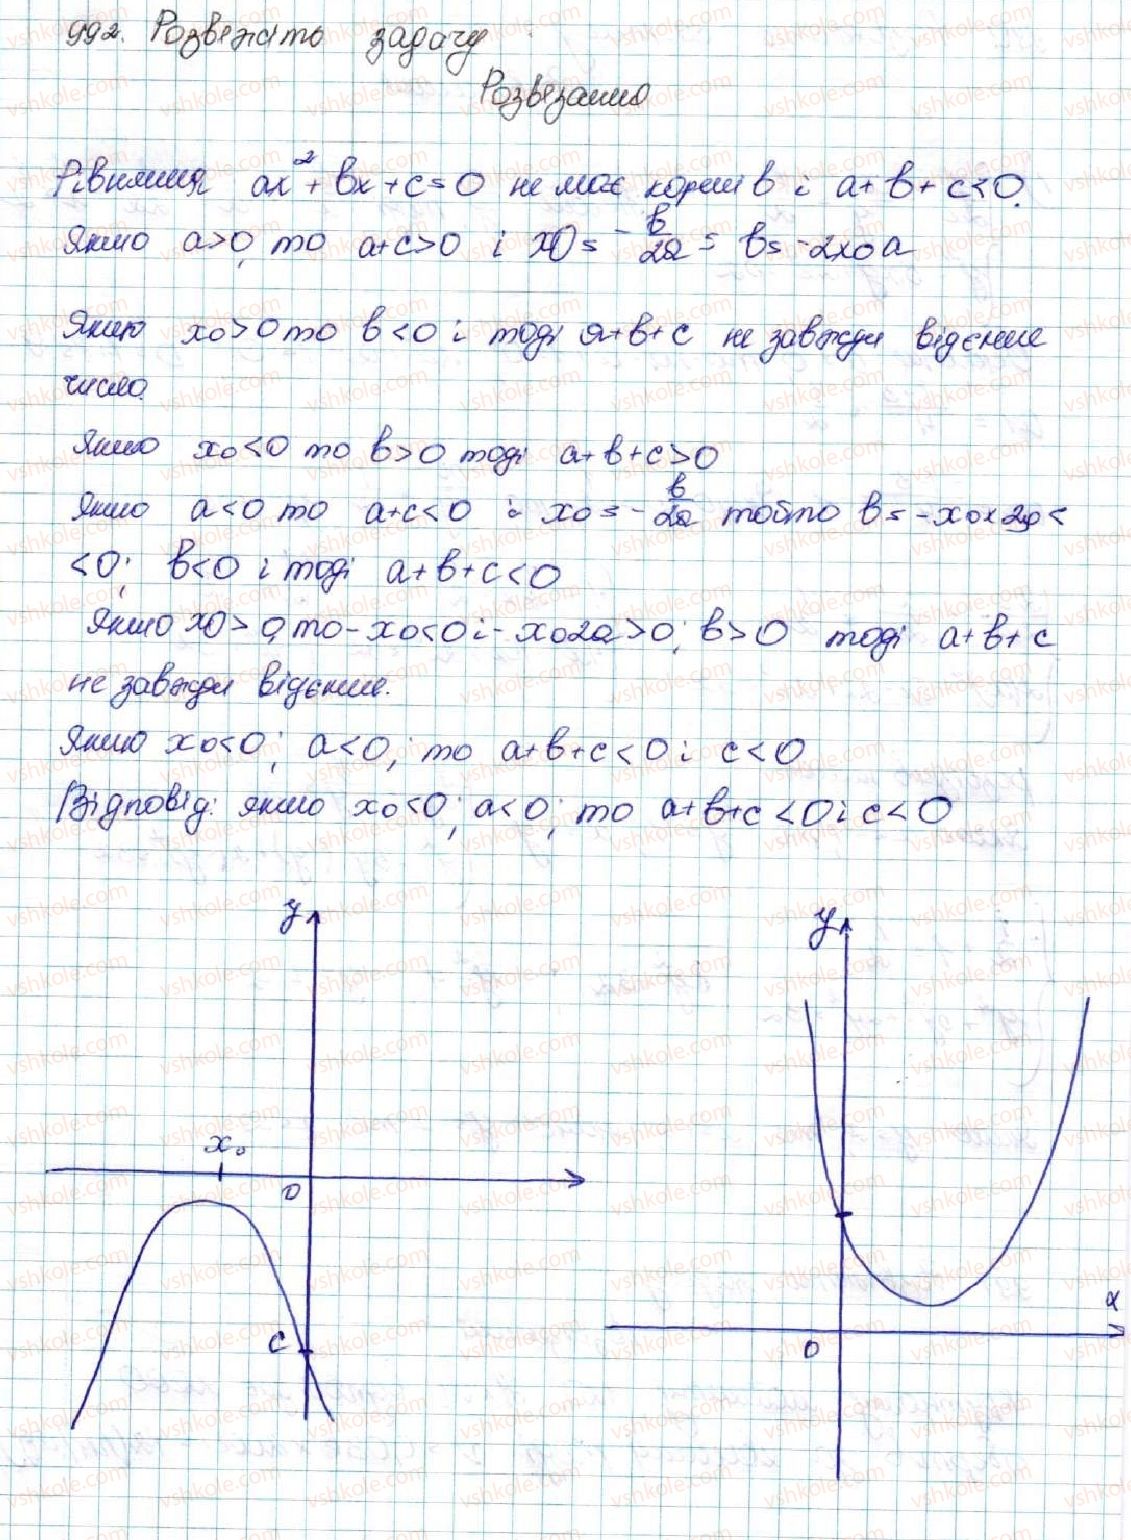 992. Розв'яжіть задачу
Розв'язання
Рівняння ax² + bx + c = 0 не має коренів і a + b + c < 0.
Якщо a > 0, то a + c > 0 і x0 = -b/2a = b = -2x0a
Якщо x0 > 0 то b < 0 і тоді a + b + c не завжди від'ємне
число.
Якщо x0 < 0 то b > 0 тоді a + b + c > 0
Якщо a < 0 то a + c < 0 і x0 = -b/2a тобто b = -x0 × 2a <
< 0; b < 0 і тоді a + b + c < 0
Якщо x0 > 0, то -x0 < 0 і -x02a > 0; b > 0 тоді a + b + c
не завжди від'ємне.
Якщо x0 < 0; a < 0; то a + b + c < 0 і c < 0
Відповід: якщо x0 < 0; a < 0; то a + b + c < 0 і c < 0
y
y
x₀
0
c
x
0
vshkole.com